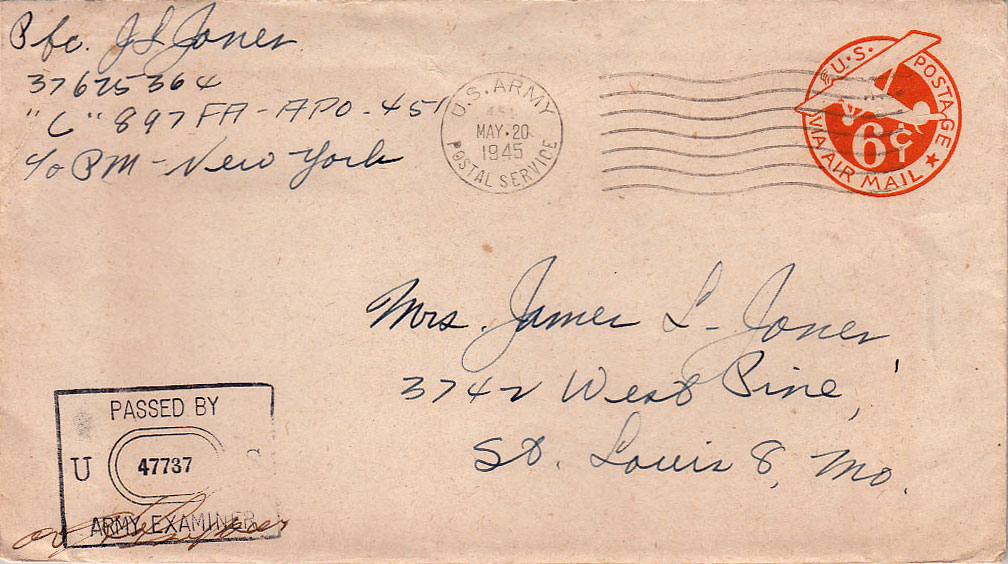 Pfc. J L Jones
37625364
"C" 897 FA - APO - 451
c/o PM - New York
U.S. ARMY
451
MAY·20
1945
POSTAL SERVICE
U.S. POSTAGE
6¢
VIA AIR MAIL
Mrs. James L. Jones
3742 West Pine,
St. Louis 8, Mo.
PASSED BY
U 47737 S
ARMY EXAMINER